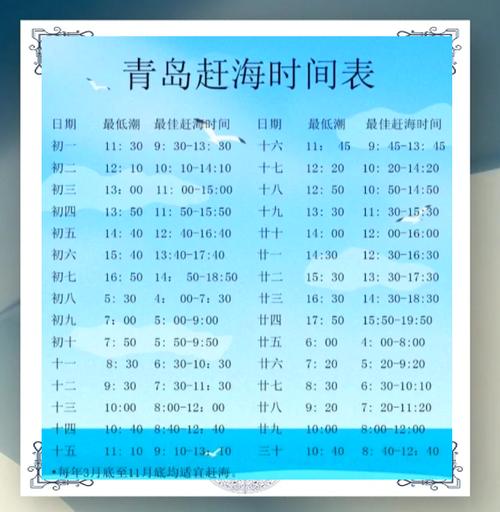 青岛赶海时间表
日期 最低潮 最佳赶海时间 日期 最低潮 最佳赶海时间
初一 11: 30 9: 30-13: 30 十六 11: 45 9: 45-13: 45
初二 12: 10 10: 10-14:10 十七 12: 20 10: 20-14:20
初三 13: 00 11: 00-15:00 十八 12: 50 10: 50-14:50
初四 13: 50 11: 50-15:50 十九 13: 30 11: 30-15:30
初五 14: 40 12: 40-16:40 二十 14: 00 12: 00-16:00
初六 15: 40 13:40-17:40 廿一 14:30 12: 30-16:30
初七 16: 50 14: 50-18:50 廿二 15: 30 13: 30-17:30
初八 5: 30 4: 00-7: 30 廿三 16: 30 14: 30-18:30
初九 7: 00 5: 00-9:00 廿四 17: 50 15:50-19:50
初十 7: 50 5: 50-9:50 廿五 6: 00 4: 00-8:00
十一 8: 30 6: 30-10: 30 廿六 7: 20 5: 20-9:20
十二 9: 30 7: 30-11: 30 廿七 8: 30 6: 30-10:10
十三 10:00 8:00-12: 00 廿八 9: 20 7: 20-11:20
十四 10: 40 8:40-12: 40 廿九 10: 00 8:00-12:00
十五 11: 10 9: 10-13: 10 三十 10: 40 8: 40-12: 40
*每年3月底至11月底均适宜赶海。